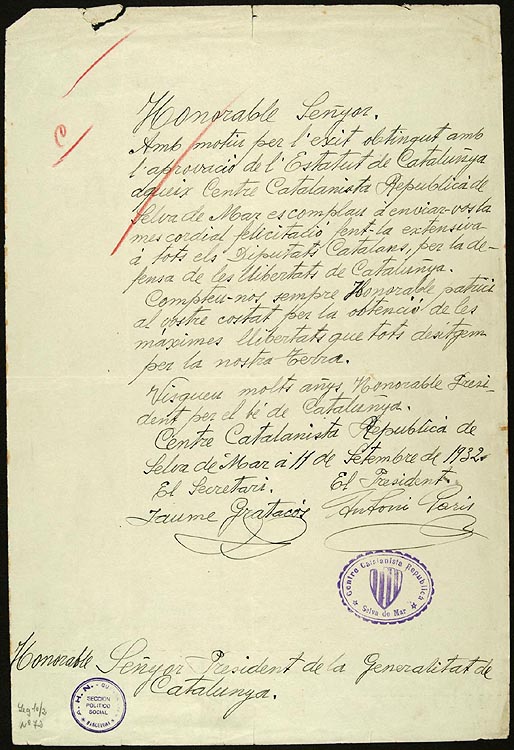 C
Honorable Señyor.
Amb motiu per l'exit obtingut amb
l'aprovació de l'Estatut de Cataluñya
aqueix Centre Catalanista Republicá de
Selva de Mar es complau á enviar-vos la
mes cordial felicitació fent-la extensiva
á tots els Diputats Catalans, per la de-
fensa de les Llibertats de Cataluñya.
Compteu-nos sempre Honorable patrici
al vostre costat per la obtenció de les
máximes llibertats que tots desitgem
per la nostra terra.
Visqueu molts añys Honorable Presi-
dent per el bé de Cataluñya.
Centre Catalanista Republicá de
Selva de Mar á 11 de Setembre de 1932.
El Secretari. El President.
Jaume Gratacós Antoni Paris
Centre Catalanista Republicá
★ Selva de Mar ★
Honorable Señyor President de la Generalitat de
Catalunya.
A.H.N.
SECCION
POLITICO
SOCIAL
Leg 10/2
Nº 72